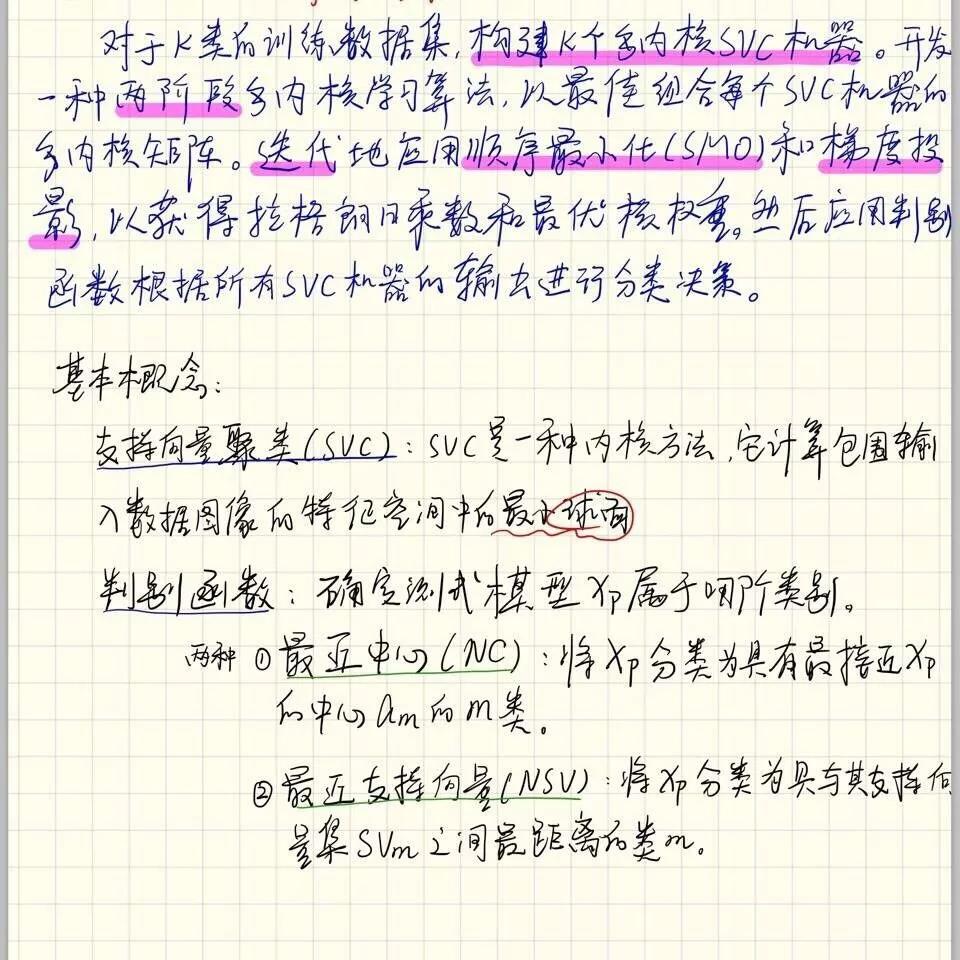 对于K类的训练数据集,构建K个多内核SVC机器。开发
一种两阶段多内核学习算法,以最佳组合每个SVC机器的
多内核矩阵。迭代地应用顺序最小化(SMO)和梯度投
影,以获得拉格朗日乘数和最优核权重。然后应用判别
函数根据所有SVC机器的输出进行分类决策。
基本概念:
支持向量聚类(SVC):SVC是一种内核方法,它计算包围输
入数据图像的特征空间中的最小球面
判别函数:确定测试模型Xp属于哪个类别。
两种 ①最近中心(NC):将Xp分类为具有最接近Xp
的中心am的m类。
②最近支持向量(NSV):将Xp分类为具与其支持向
量集SVm之间最距离的类m。